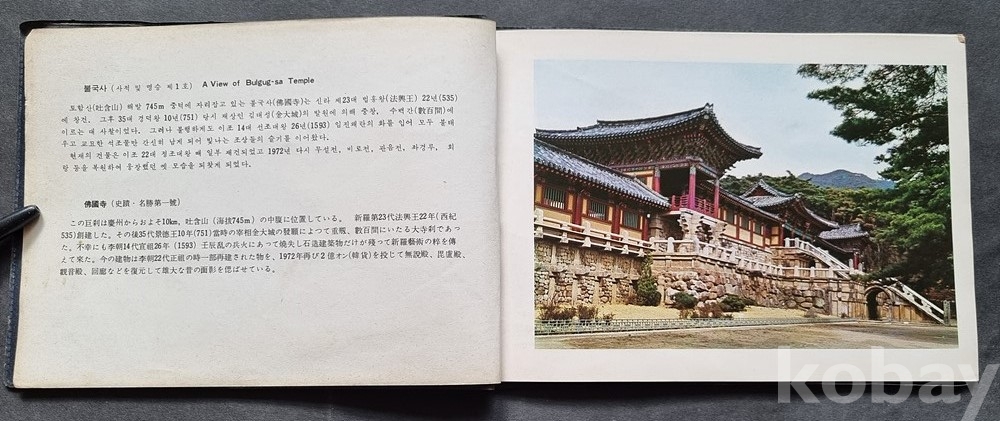 불국사 (사적 및 명승 제1호) A View of Bulgug-sa Temple
토함산(吐含山) 해발 745m 중턱에 자리잡고 있는 불국사(佛國寺)는 신라 제23대 법흥왕(法興王) 22년(535)
에 창건, 그후 35대 경덕왕 10년(751) 당시 재상인 김대성(金大城)의 발원에 의해 중창, 수백간(數百間)에
이르는 대 사찰이었다. 그러나 불행하게도 이조 14대 선조대왕 26년(1593) 임진왜란의 화를 입어 모두 불태
우고 교묘한 석조물만 간신히 남게 되어 빛나는 조상들의 슬기를 이어왔다.
현재의 건물은 이조 22대 정조대왕 때 일부 재건되었고 1972년 다시 무설전, 비로전, 관음전, 좌경루, 회
랑 등을 복원하여 웅장했던 옛 모습을 되찾게 되었다.
佛國寺 (史蹟・名勝第一號)
この巨刹は慶州からおよそ10km, 吐含山 (海抜745m) の中腹に位置している。 新羅第23代法興王22年(西紀
535)創建した。その後35代景徳王10年(751)當時の宰相金大城の發願によって重瓶、數百間にいたる大寺刹であっ
た。不幸にも李朝14代宣祖26年(1593) 壬辰乱の兵火にあって焼失し石造建築物だけが残つて新羅藝術の粋を傳
えて來た。今の建物は李朝22代正祖の時一部再建された物を、1972年再び2億オン(韓貨)を投じて無說殿、毘盧殿、
觀音殿、回廊などを復元して雄大な昔の面影を偲ばせている。
kobay